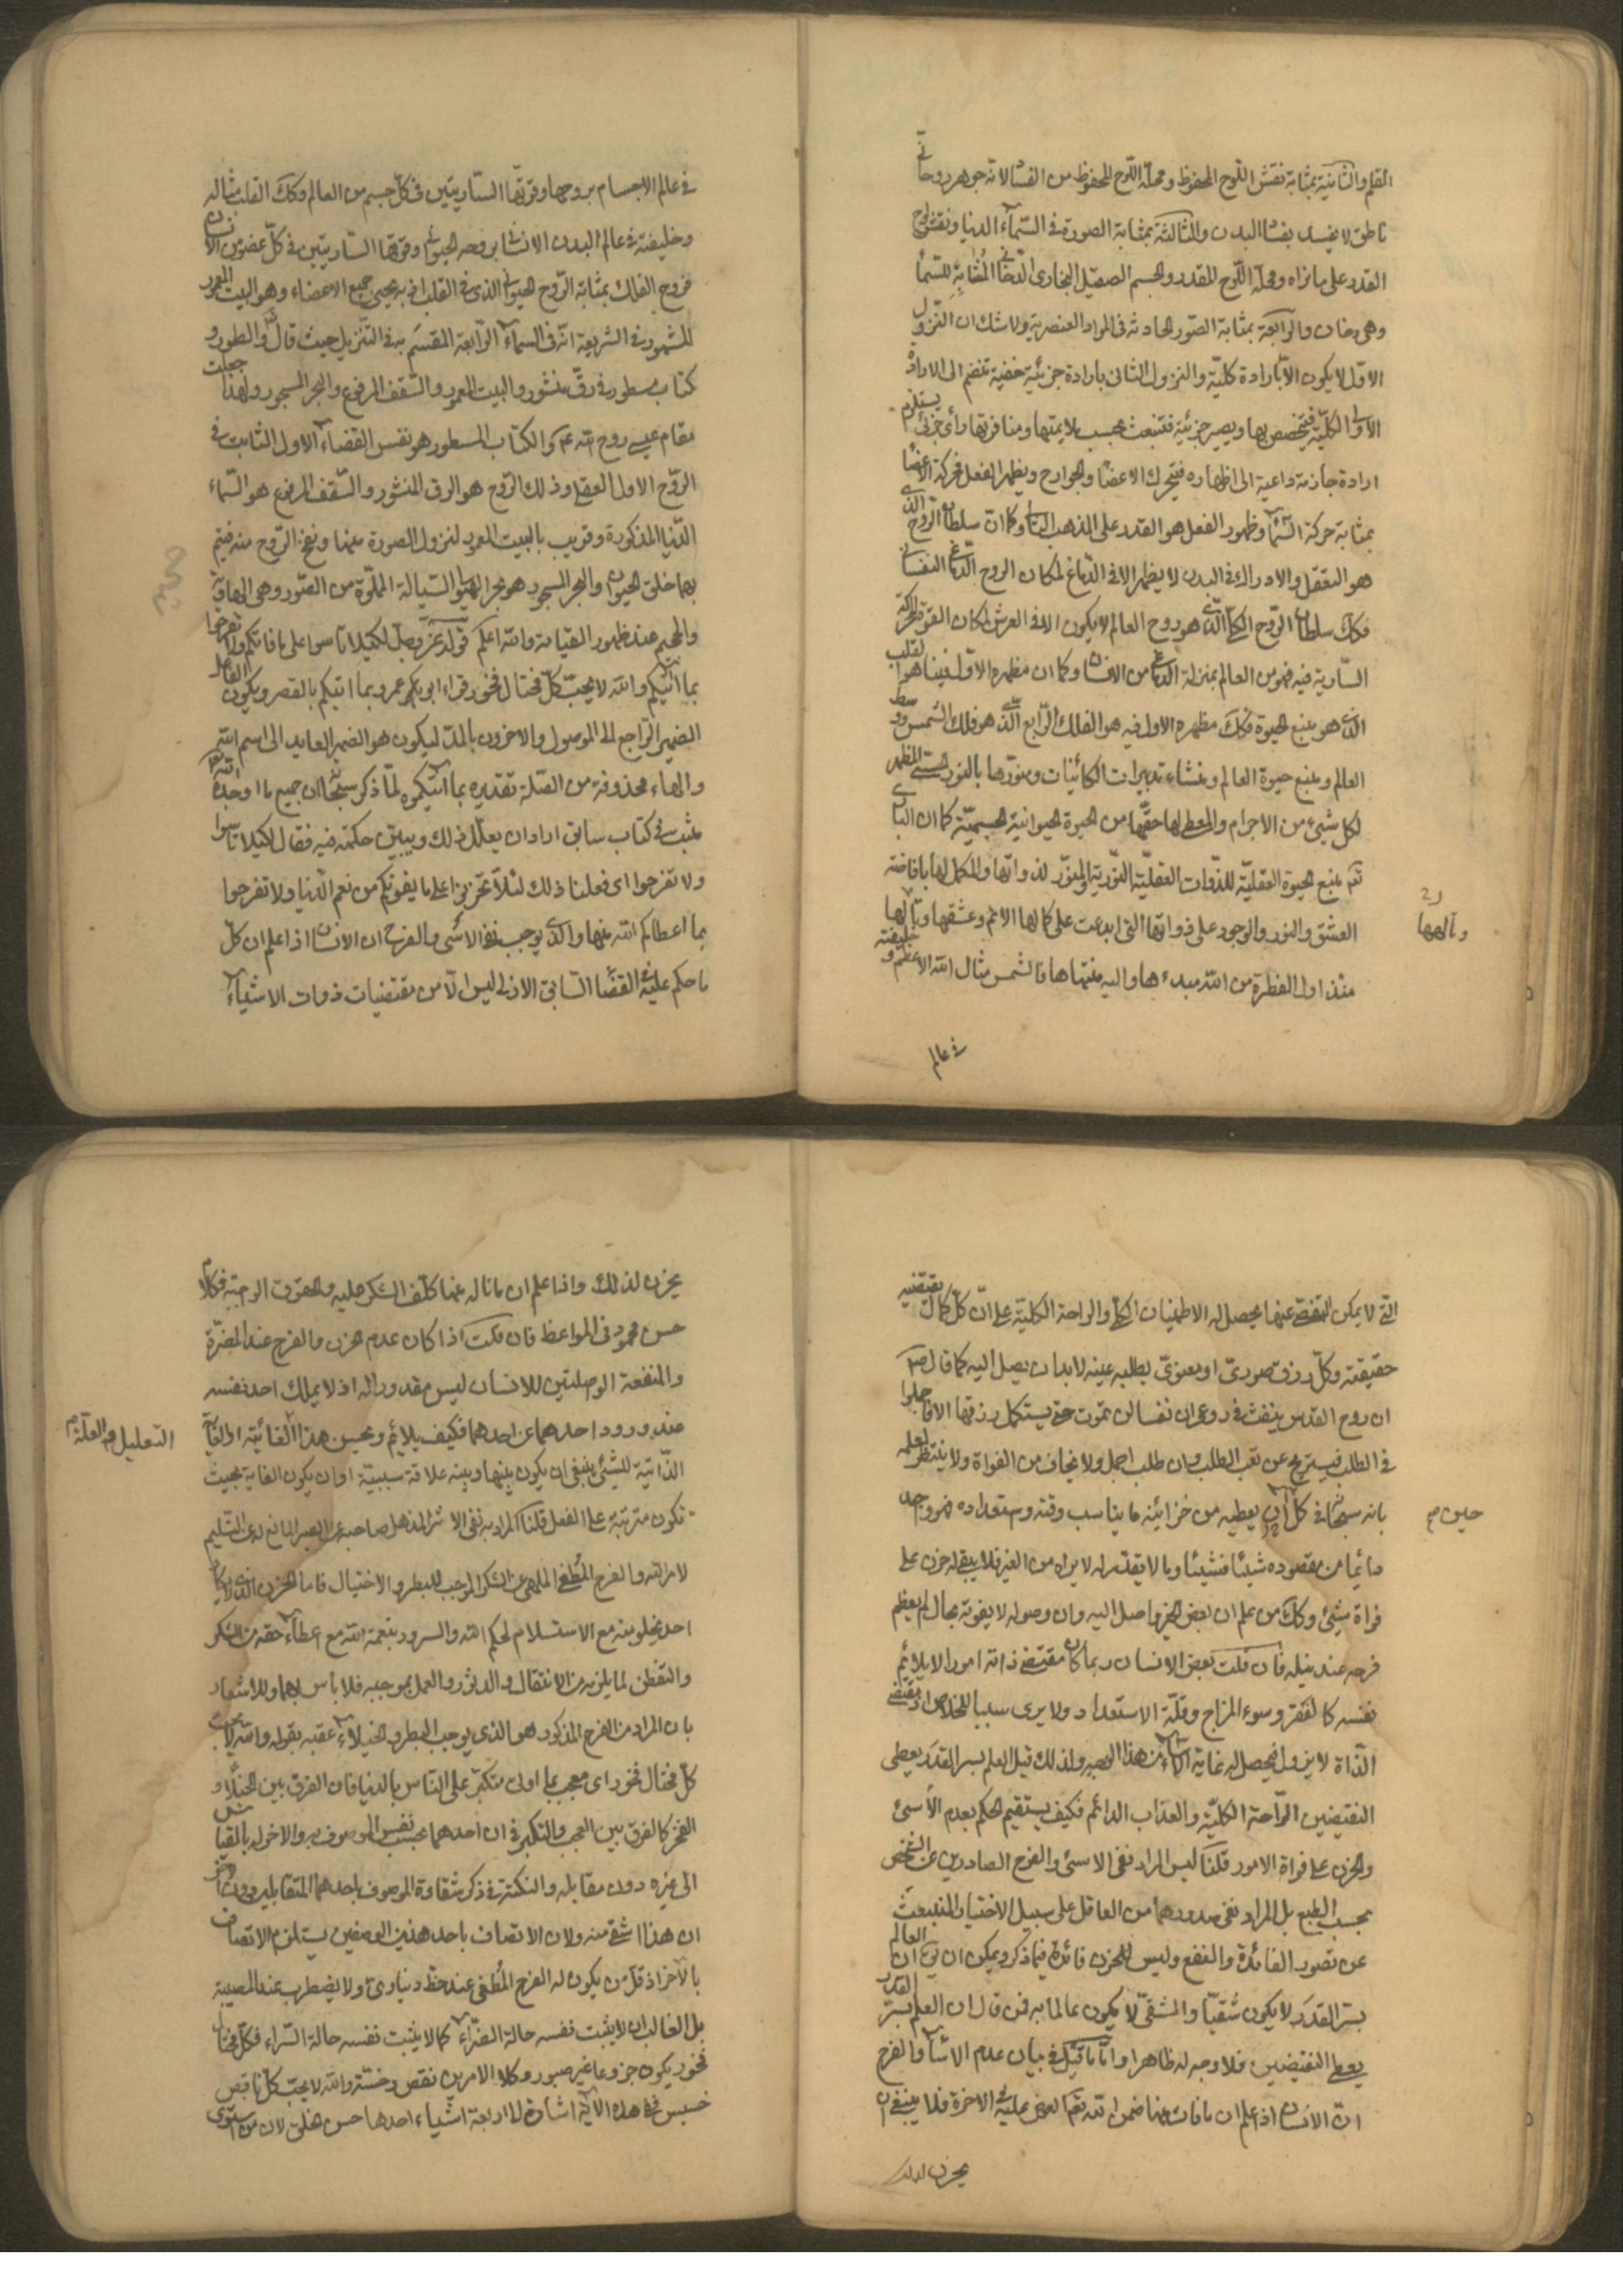 القلم والثانية بمثابة نقش اللوح المحفوظ ومحله اللوح المحفوظ من النفس لانه جوهر روحانی
ناطق لا یفسد بفساد البدن والثالثة بمثابة الصورة فی السّماء الدنیا ونقش لوح
القدر علی ما نراه ومحله اللّوح المقدر والجسم الصقیل البخاری الدّخانی المشابه للسّماء
وهی دخان والرابعة بمثابة الصّور الحادثة فی المواد العنصریة ولا شك ان النزول
الاوّل لا یکون الّا بارادة کلیّة والنزول الثانی بارادة جزئیة خفیة تنضم الی الارادة
الاولی الکلیّة فیتخصص بها ویصیر جزئیة فتنبعث بحسب ملایمتها ومنافرتها رأی جزئی یستلزم
ارادة جازمة داعیة الی اظهاره فیتحرك الاعضاء والجوارح ویظهر الفعل فحرکة الاعضا
بمثابة حرکة السّماء وظهور الفعل هو القدر علی المذهب الثانی وکما ان سلطان الرّوح الذی
هو التعقل والادراك فی البدن لا یظهر الا فی الدّماغ لمکان الروح الدّماغی النفسانی
فکك سلطان الرّوح الکلّی الّذی هو روح العالم لا یکون الا فی العرش لمکان القوة المحرکة
السّاریة فیه فهو من العالم بمنزلة الدماغ من الانسان وکما ان مظهره الاوّل فینا هو القلب
الذی هو منبع الحیوة فکك مظهره الاول فیه هو الفلك الرّابع الّذی هو فلك الشمس وسط
العالم ومنبع حیوة العالم ومنشاء تدبیرات الکائینات ومنوّرها بالنور الحسّی المظهر
لکل شیئ من الاجرام والمعطی لها حقّها من الحیوة الحیوانیة الجسمیّة کما ان الباری
تع منبع الحیوة العقلیّة للذّوات العقلیّة النّوریة والمنوّر لذواتها والمکمل لها بافاضة
العشق والنور والوجود علی ذواتها التی ابدعت علی کمالها الاتم وعشقها وتألّهها
وتألهها
منذ اول الفطرة من الله مبدءها والیه منتهاها فالشمس مثال الله الاعظم وخلیفته
فی عالم
فی عالم الاجسام بروحها وقوتها السّاریتین فی کلّ جسم من العالم وکك القلب مثاله
وخلیفته فی عالم البدن الانسانی بروحه الحیوانی وقوتها السّاریتین فی کلّ عضو من الانسان
فروح الفلك بمثابة الرّوح الحیوانی الذی فی القلب اذ به یحیی جمیع الاعضاء وهو البیت المعمور
المشهور فی الشریعة انّه فی السماء الرّابعة المقسم به فی التنزیل حیث قال تع والطور و
کتاب مسطور فی رقّ منشور والبیت المعمور والسّقف المرفوع والبحر المسجور ولهذا جعلت
مقام عیسی روح الله ع م والکتاب المسطور هو نفس القضاء الاول الثابت فی
الرّوح الاول العقلی وذلك الرّوح هو الرق المنشور والسّقف المرفوع هو السّماء
الدّنیا المذکورة وقریب بالبیت المعمور لنزول الصورة منها ونفخ الرّوح منه فیتم
بهما خلق الحیوان والبحر المسجور هو بحر الهیولی السّیالة المملوّة من الصّور وهی الهاویة
والجحیم عند ظهور القیامة والله اعلم قوله عزّ وجلّ لکیلا تأسوا علی ما فاتکم ولا تفرحوا
بما اتیکم والله لا یحبّ کلّ مختال فخور قراء ابو عمرو بما اتیکم بالقصر ویکون الفاعل
الضمیر الرّاجع الی الموصول والاخرون بالمدّ لیکون هو الضمیر العاید الی اسم الله
والهاء محذوفة من الصّلة تقدیره بما اتیکموه لمّا ذکر سبحانه ان جمیع ما اوجده الله
مثبت فی کتاب سابق اراد ان یعلّل ذلك ویبین حکمته فیه فقال لکیلا تأسوا
ولا تفرحوا ای فعلنا ذلك لئلّا تحزنوا علی ما یفوتکم من نعم الدّنیا ولا تفرحوا
بما اعطاکم الله منها والّذی یوجب نفی الاسی والفرح ان الانسان اذا علم ان کلّ
ما حکم علیه فی القضاء السّابق الازلی لیس الّا من مقتضیات ذوات الاشیاء
التی لا یمکن التفصّی عنها یحصل له الاطمینان الکلّی والراحة الکلیّة علی انّ کلّ کمال یقتضیه
حقیقته وکلّ رزق صوریّ او معنویّ یطلبه عینه لابدّ ان یصل الیه کما قال ص
ان روح القدس ینفث فی روعی ان نفسا لن تموت حتّی یستکمل رزقها الا فاجملوا
فی الطلب فیستریح عن تعب الطلب وان طلب اجمل ولا یخاف من الفواة ولا ینتظر لعلمه
بانه سبحانه فی کل ان یعطیه من خزائینه ما یناسب وقته واستعداده فهو واجد
حین
دائما من مقصوده شیئا فشیئا وما لا یقدّر له لا یراه من الغیر فلا یبقی له حزن علی
فواة شیئ وکك من علم ان بعض الخیر واصل الیه وان وصوله لا یفوته بحال لم یعظم
فرحه عند نیله فان قلت بعض الانسان ربما کان مقتضی ذاته امورا لا یلایم
نفسه کالفقر وسوء المزاج وقلّة الاستعداد ولا یری سببا للخلاص اذ مقتضی
الذّاة لا یزول فیحصل له غایة الالم من هذا الوجه ولذلك قیل العلم بسر القدر یعطی
النقیضین الرّاحة الکلیّة والعذاب الدائم فکیف یستقیم الحکم بعدم الاسی
والحزن علی فواة الامور قلنا لیس المراد نفی الاسی والفرح الصادرین عن الشخص
بحسب الطبع بل المراد نفی صدورهما من العاقل علی سبیل الاختیار المنبعث
عن تصور الفائدة والنفع ولیس للحزن فائدة فیما ذکر ویمکن ان یق ان العالم
بسرّ القدر لا یکون شقیّا والشقیّ لا یکون عالما به فمن قال ان العلم بسرّ القدر
یعطی النقیضین فلا وجه له ظاهرا وامّا ما قیل فی بیان عدم الاسا والفرح
انّ الانسان اذا علم ان ما فات منها ضمن الله تع العوض علیه فی الاخرة فلا ینبغی ان
یحزن لذلك
یحزن لذلك واذا علم ان ما ناله منها کلّف الشکر علیه والحقوق الواجبة فکلام
حسن محمود فی المواعظ فان قلت اذا کان عدم الحزن والفرح عند المضرّة
والمنفعة الواصلتین للانسان لیس مقدورا له اذ لا یملك احد نفسه
عند ورود احدهما عن احدهما فکیف یلایم ویحسن هذا الغائیة اذ الغایة
التعلیل هو العلّة
الذّاتیّة للشیئ ینبغی ان یکون بینها وبینه علاقة سببیّة او ان یکون الغایة بحیث
تکون مترتبة علی الفعل قلنا المراد به نفی الاثر المذهل صاحبه عن الصبر المانع له عن التسلیم
لامر الله والفرح المُطغی الملهی عن الشکر الموجب للبطر والاختیال فاما الحزن الذی لا یکاد
احد یخلو منه مع الاستسلام لحکم الله والسرور بنعمة الله مع اعطاء حقه من الشکر
والتفطن لما یلزمه من الانتقال والدثور والعمل بموجبه فلا باس بهما وللاشعار
بان المراد من الفرح المذکور هو الذی یوجب البطر والخیلاء عقبه بقوله والله لا یحب
کلّ مختال فخور ای معجب بما اوتی متکبّر علی النّاس بالدنیا فان الفرق بین الخیلاء و
الفخر کالفرق بین العجب والتکبر فی ان احدهما بحسب نفس الموصوف به والاخر له بالقیاس
الی غیره دون مقابله والنکتة فی ذکر شقاوة الموصوف باحدهما المتقابلین دون الاخر
ان هذا اشقی منه ولان الاتصاف باحد هذین الوصفین یستلزم الاتصاف
بالاخر اذ قلّ من یکون له الفرح المُطغی عند حظّ دنیاویّ ولا یضطرب عند المصیبة
بل الغالب ان لا یثبت نفسه حالة الضرّاء کما لا یثبت نفسه حالة السّراء فکلّ مختال
فخور یکون جزوعا غیر صبور وکلا الامرین نقص وخسّة والله لا یحبّ کلّ ناقص
خسیس ففی هذه الایة اشارة الی اربعة اشیاء احدها حسن الخلق لان من استوی